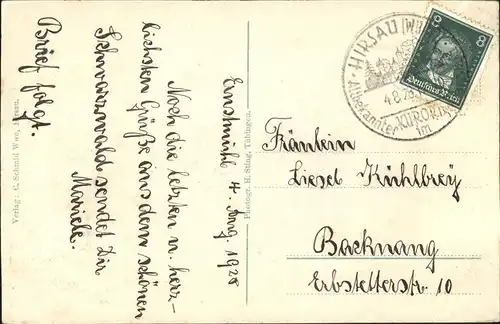 Ernstmühl 4. Aug. 1928
Noch die letzten u. herz-
lichsten Grüße aus dem schönen
Schwarzwald sendet Dir
Mariele.
Brief folgt.
Verlag: C. Schmid Wwe.,
Photogr. H. Sting, Tübingen.
HIRSAU
Altbekannter KURORT
im
4.8.28
8 8
Deutsches Reich
Fräulein
Liesel Kühlbrey
Backnang
Erbstetterstr. 10